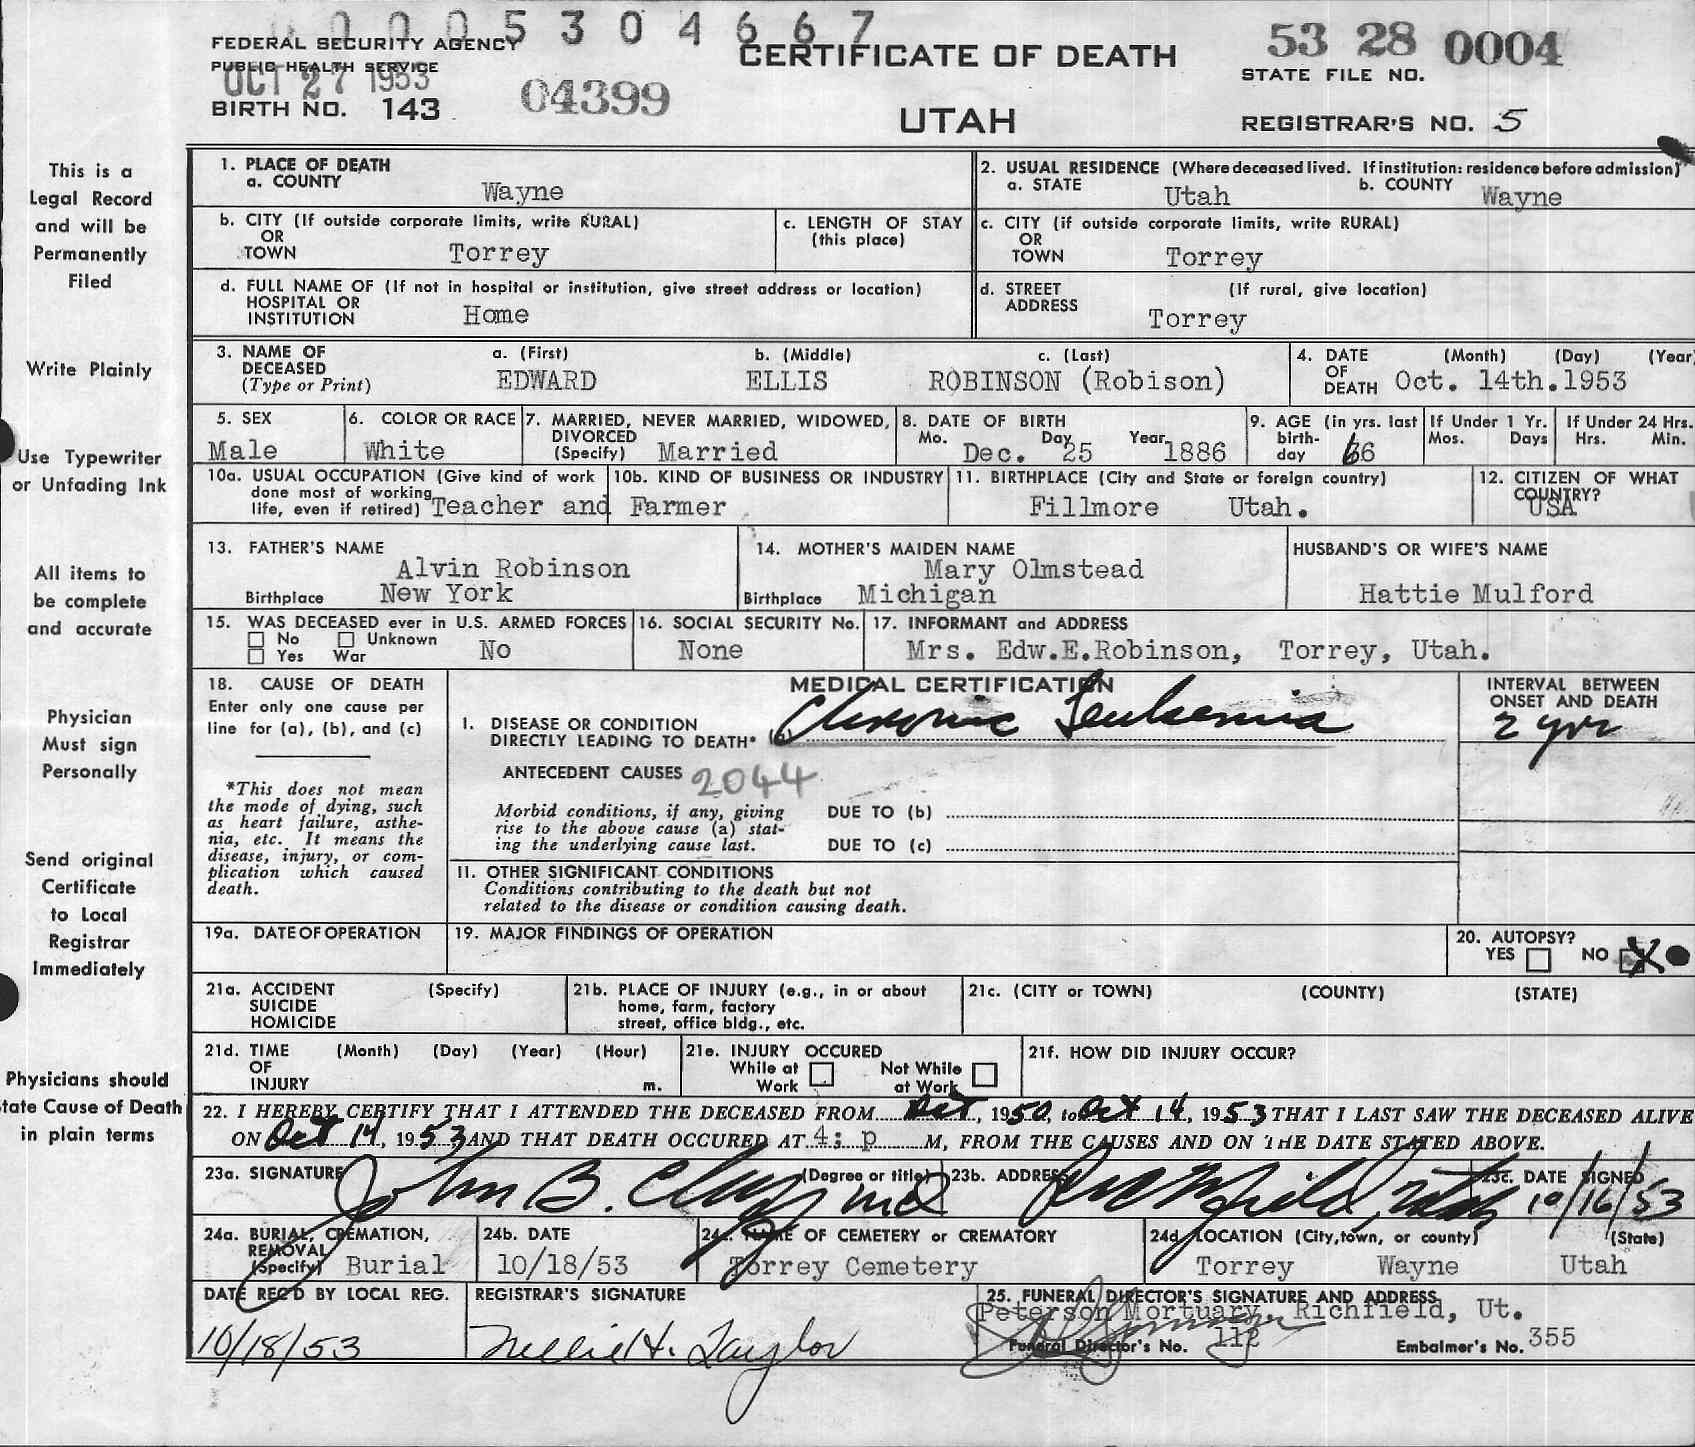 0005304667
FEDERAL SECURITY AGENCY
PUBLIC HEALTH SERVICE
OCT 27 1953
BIRTH NO. 143
04399
CERTIFICATE OF DEATH
UTAH
53 28 0004
STATE FILE NO.
REGISTRAR'S NO. 5
This is a
Legal Record
and will be
Permanently
Filed
Write Plainly
Use Typewriter
or Unfading Ink
All items to
be complete
and accurate
Physician
Must sign
Personally
Send original
Certificate
to Local
Registrar
Immediately
Physicians should
tate Cause of Death
in plain terms
1. PLACE OF DEATH
a. COUNTY Wayne
2. USUAL RESIDENCE (Where deceased lived. If institution: residence before admission)
a. STATE Utah b. COUNTY Wayne
b. CITY (If outside corporate limits, write RURAL)
OR
TOWN Torrey
c. LENGTH OF STAY
(this place)
c. CITY (if outside corporate limits, write RURAL)
OR
TOWN Torrey
d. FULL NAME OF (If not in hospital or institution, give street address or location)
HOSPITAL OR
INSTITUTION Home
d. STREET (If rural, give location)
ADDRESS Torrey
3. NAME OF DECEASED (Type or Print)
a. (First) b. (Middle) c. (Last)
EDWARD ELLIS ROBINSON (Robison)
4. DATE OF DEATH (Month) (Day) (Year
Oct. 14th.1953
5. SEX
Male
6. COLOR OR RACE
White
7. MARRIED, NEVER MARRIED, WIDOWED,
DIVORCED
(Specify) Married
8. DATE OF BIRTH
Mo. Day Year
Dec. 25 1886
9. AGE (in yrs. last
birth-
day 66
If Under 1 Yr.
Mos. Days
If Under 24 Hrs.
Hrs. Min.
10a. USUAL OCCUPATION (Give kind of work
done most of working
life, even if retired) Teacher and
10b. KIND OF BUSINESS OR INDUSTRY
Farmer
11. BIRTHPLACE (City and State or foreign country)
Fillmore Utah.
12. CITIZEN OF WHAT
COUNTRY?
USA
13. FATHER'S NAME
Alvin Robinson
Birthplace New York
14. MOTHER'S MAIDEN NAME
Mary Olmstead
Birthplace Michigan
HUSBAND'S OR WIFE'S NAME
Hattie Mulford
15. WAS DECEASED ever in U.S. ARMED FORCES
No Unknown
Yes War No
16. SOCIAL SECURITY No.
None
17. INFORMANT and ADDRESS
Mrs. Edw.E.Robinson, Torrey, Utah.
18. CAUSE OF DEATH
Enter only one cause per
line for (a), (b), and (c)
*This does not mean
the mode of dying, such
as heart failure, asthe-
nia, etc. It means the
disease, injury, or com-
plication which caused
death.
MEDICAL CERTIFICATION
I. DISEASE OR CONDITION
DIRECTLY LEADING TO DEATH* Chronic Leukemia
ANTECEDENT CAUSES 2044
Morbid conditions, if any, giving
rise to the above cause (a) stat-
ing the underlying cause last.
DUE TO (b)
DUE TO (c)
INTERVAL BETWEEN
ONSET AND DEATH
2 yrs
II. OTHER SIGNIFICANT CONDITIONS
Conditions contributing to the death but not
related to the disease or condition causing death.
19a. DATE OF OPERATION
19. MAJOR FINDINGS OF OPERATION
20. AUTOPSY?
YES NO X
21a. ACCIDENT (Specify)
SUICIDE
HOMICIDE
21b. PLACE OF INJURY (e.g., in or about
home, farm, factory
street, office bldg., etc.
21c. (CITY or TOWN) (COUNTY) (STATE)
21d. TIME (Month) (Day) (Year) (Hour)
OF
INJURY m.
21e. INJURY OCCURED
While at Work
Not While at Work
21f. HOW DID INJURY OCCUR?
22. I HEREBY CERTIFY THAT I ATTENDED THE DECEASED FROM Oct, 1950, to Oct 14, 1953 THAT I LAST SAW THE DECEASED ALIVE
ON Oct 14, 1953 AND THAT DEATH OCCURED AT 4: p M, FROM THE CAUSES AND ON THE DATE STATED ABOVE.
23a. SIGNATURE (Degree or title)
John B. md
23b. ADDRESS
Richfield, Utah
23c. DATE SIGNED
10/16/53
24a. BURIAL, CREMATION,
REMOVAL
(Specify) Burial
24b. DATE
10/18/53
24c. NAME OF CEMETERY or CREMATORY
Torrey Cemetery
24d LOCATION (City,town, or county) (State)
Torrey Wayne Utah
DATE REC'D BY LOCAL REG.
10/18/53
REGISTRAR'S SIGNATURE
Nellie H. Taylor
25. FUNERAL DIRECTOR'S SIGNATURE AND ADDRESS
Peterson Mortuary, Richfield, Ut.
Funeral Director's No. 112 Embalmer's No. 355